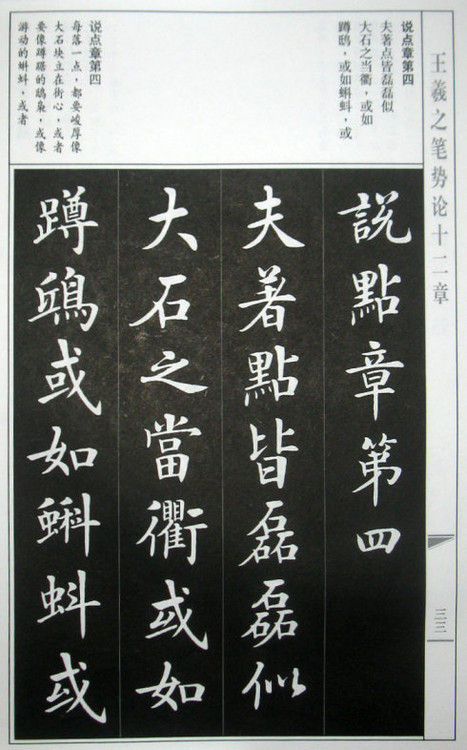 王羲之笔势论十二章
三三
说点章第四
夫著点皆磊磊似
大石之当衢，或如
蹲鸱，或如蝌蚪，或
说点章第四
每落一点，都要峻厚像
大石块立在街心，或者
要像蹲踞的鸱枭，或像
游动的蝌蚪，或者
說點章第四
夫著點皆磊磊似
大石之當衢或如
蹲鴟或如蝌蚪或